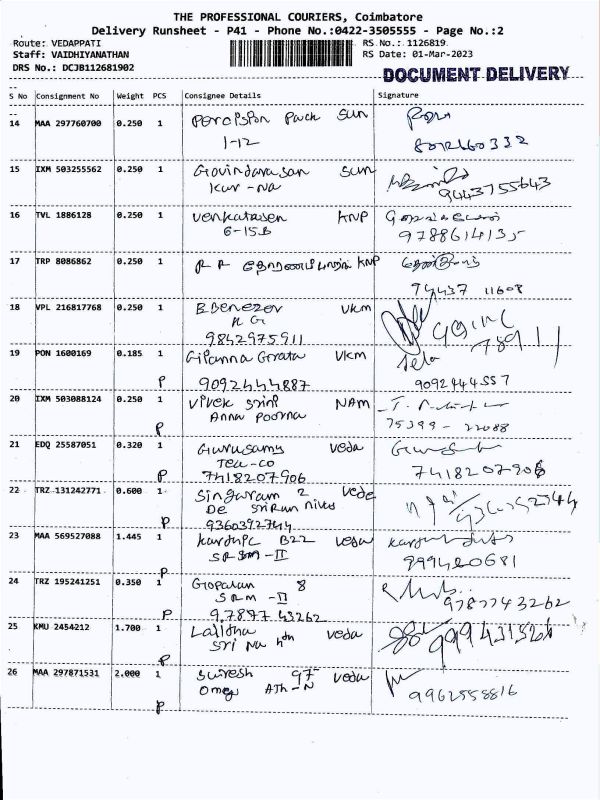 THE PROFESSIONAL COURIERS, Coimbatore
Delivery Runsheet - P41 - Phone No.:0422-3505555 - Page No.:2
Route: VEDAPPATI RS No.: 1126819
Staff: VAIDHIYANATHAN RS Date: 01-Mar-2023
DRS No.: DCJB112681902 DOCUMENT DELIVERY
S No Consignment No Weight PCS Consignee Details Signature
14 MAA 297760700 0.250 1 Pack SUN
1-12
15 IXM 503255562 0.250 1 Govindarasan SUN
Kur-Na 9443755643
16 TVL 1886128 0.250 1 Venkatasen KNP
6-15B 9788614135
17 TRP 8086862 0.250 1 R R KNP
94437 11608
18 VPL 216817768 0.250 1 Ebenezer VKM
K G
9842975911
19 PON 1600169 0.185 1 VKM Sela
P 9092444887 9092444557
20 IXM 503088124 0.250 1 Vivek Srini NAM
Anna Poorna 75399-22088
P
21 EDQ 25587051 0.320 1 Gurusamy Veda
Tea-Co
P 7418207906 7418207906
22 TRZ 131242771 0.600 1 Singaram 2 Vede
De Sriram Nivas
P 9360392744
23 MAA 569527088 1.445 1 B22 Veda
SRSM-II 999420681
P
24 TRZ 195241251 0.350 1 Gopalan 8
SRM-II 9787743262
P 97877 43262
25 KMU 2454212 1.700 1 Lalitha Veda
Sri Na
P
26 MAA 297871531 2.000 1 Suresh 97 Veda
Omeg Ath-N 9962558816
P